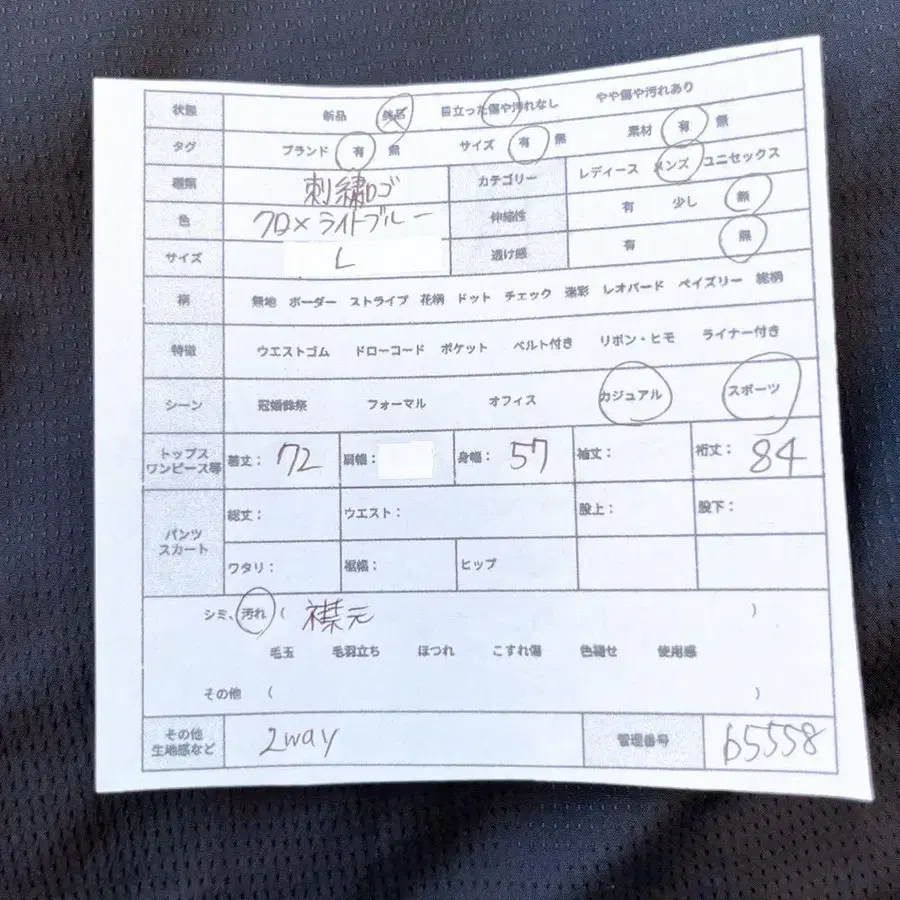 状態 新品 美品 目立った傷や汚れなし やや傷や汚れあり
タグ ブランド 有 無 サイズ 有 無 素材 有 無
種類 刺繍ロゴ カテゴリー レディース メンズ ユニセックス
色 クロ×ライトブルー 伸縮性 有 少し 無
サイズ L 透け感 有 無
柄 無地 ボーダー ストライプ 花柄 ドット チェック 迷彩 レオパード ペイズリー 総柄
特徴 ウエストゴム ドローコード ポケット ベルト付き リボン・ヒモ ライナー付き
シーン 冠婚葬祭 フォーマル オフィス カジュアル スポーツ
トップス
ワンピース等 着丈: 72 肩幅: 身幅: 57 袖丈: 裄丈: 84
パンツ
スカート 総丈: ウエスト: 股上: 股下:
ワタリ: 裾幅: ヒップ
シミ、汚れ ( 襟元 )
毛玉 毛羽立ち ほつれ こすれ傷 色褪せ 使用感
その他 ( )
その他
生地感など 2way 管理番号 b5558